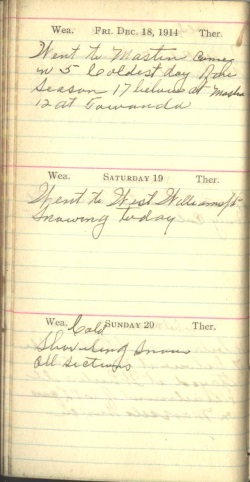 Wea. FRI. DEC. 18, 1914 Ther.
Went to Mastin Came
in 5 Coldest day of the
Season 17 below at Mastin
12 at Towanda
Wea. SATURDAY 19 Ther.
Went to West Williams
Snowing today
Wea. Cold SUNDAY 20 Ther.
Shoveling Snow
all Sections